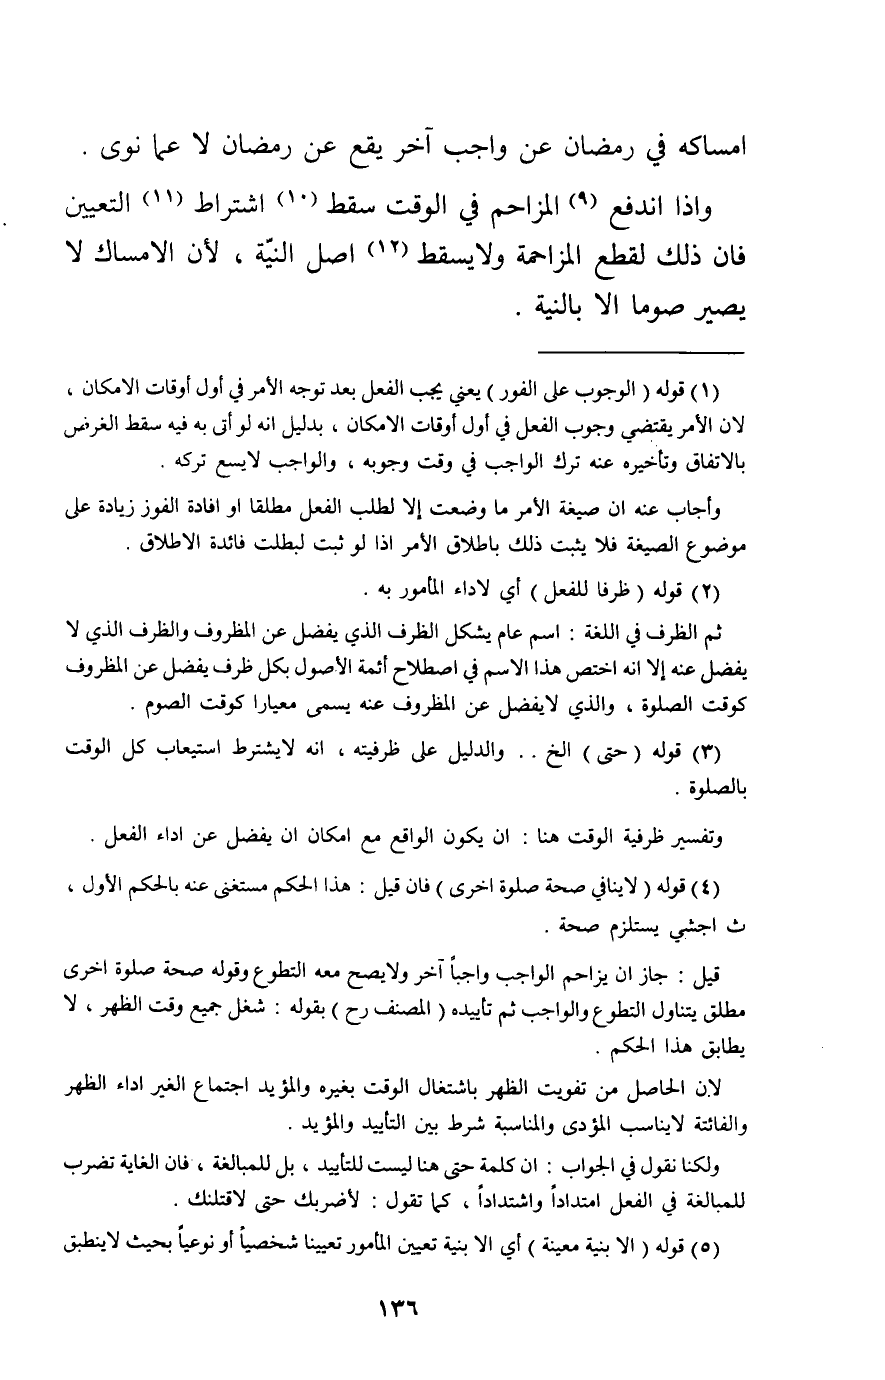 امساكه في رمضان عن واجب آخر يقع عن رمضان لا عما نوى .
واذا اندفع (٩) المزاحم في الوقت سقط (١٠) اشتراط (١١) التعيين
فان ذلك لقطع المزاحمة ولايسقط (١٢) اصل النيّة ، لأن الامساك لا
يصير صوما الا بالنية .
(١) قوله ( الوجوب على الفور ) يعني يجب الفعل بعد توجه الأمر في أول أوقات الامكان ،
لان الأمر يقتضي وجوب الفعل في أول أوقات الامكان ، بدليل انه لو أتى به فيه سقط الغرض
بالاتفاق وتأخيره عنه ترك الواجب في وقت وجوبه ، والواجب لايسع تركه .
وأجاب عنه ان صيغة الأمر ما وضعت إلا لطلب الفعل مطلقا او افادة الفوز زيادة على
موضوع الصيغة فلا يثبت ذلك باطلاق الأمر اذا لو ثبت لبطلت فائدة الاطلاق .
(٢) قوله ( ظرفا للفعل ) أي لاداء المأمور به .
ثم الظرف في اللغة : اسم عام يشكل الظرف الذي يفضل عن المظروف والظرف الذي لا
يفضل عنه إلا انه اختص هذا الاسم في اصطلاح أئمة الأصول بكل ظرف يفضل عن المظروف
كوقت الصلوة ، والذي لايفضل عن المظروف عنه يسمى معيارا كوقت الصوم .
(٣) قوله ( حتى ) الخ . . والدليل على ظرفيته ، انه لايشترط استيعاب كل الوقت
بالصلوة .
وتفسير ظرفية الوقت هنا : ان يكون الواقع مع امكان ان يفضل عن اداء الفعل .
(٤) قوله ( لاينافي صحة صلوة اخرى ) فان قيل : هذا الحكم مستغنى عنه بالحكم الأول ،
ث اجشي يستلزم صحة .
قيل : جاز ان يزاحم الواجب واجباً آخر ولايصح معه التطوع وقوله صحة صلوة اخرى
مطلق يتناول التطوع والواجب ثم تأييده ( المصنف رح ) بقوله : شغل جميع وقت الظهر ، لا
يطابق هذا الحكم .
لان الحاصل من تفويت الظهر باشتغال الوقت بغيره والمؤيد اجتماع الغير اداء الظهر
والفائتة لايناسب المؤدى والمناسبة شرط بين التأييد والمؤيد .
ولكنا نقول في الجواب : ان كلمة حتى هنا ليست للتأييد ، بل للمبالغة ، فان الغاية تضرب
للمبالغة في الفعل امتداداً واشتداداً ، كما تقول : لأضربك حتى لاقتلنك .
(٥) قوله ( الا بنية معينة ) أي الا بنية تعيين المأمور تعيينا شخصياً أو نوعياً بحيث لاينطبق
١٣٦